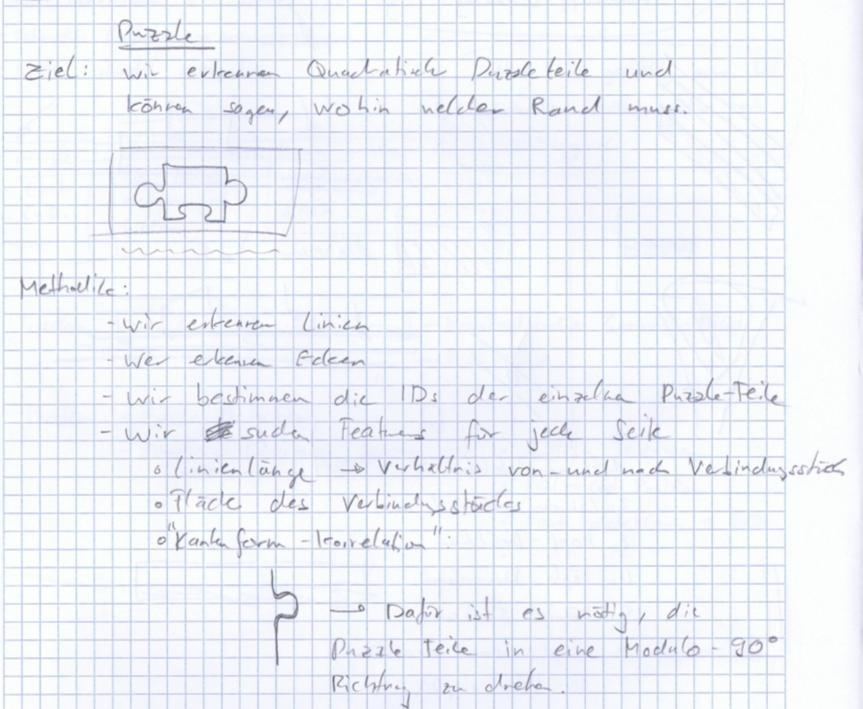 Puzzle
Ziel: wir erkennen Quadratisch Puzzleteile und
können sagen, wohin welcher Rand muss.
Methodik:
- wir erkennen Linien
- Wer erkennen Ecken
- Wir bestimmen die IDs der einzelnen Puzzle-Teile
- Wir suchen Features für jede Seite
o Linienlänge → Verhältnis von- und nach Verbindungsstück
o Fläche des Verbindungsstückes
o "Kantenform - korrelation".
→ Dafür ist es nötig, die
Puzzle Teile in eine Modulo - 90°
Richtung zu drehen.